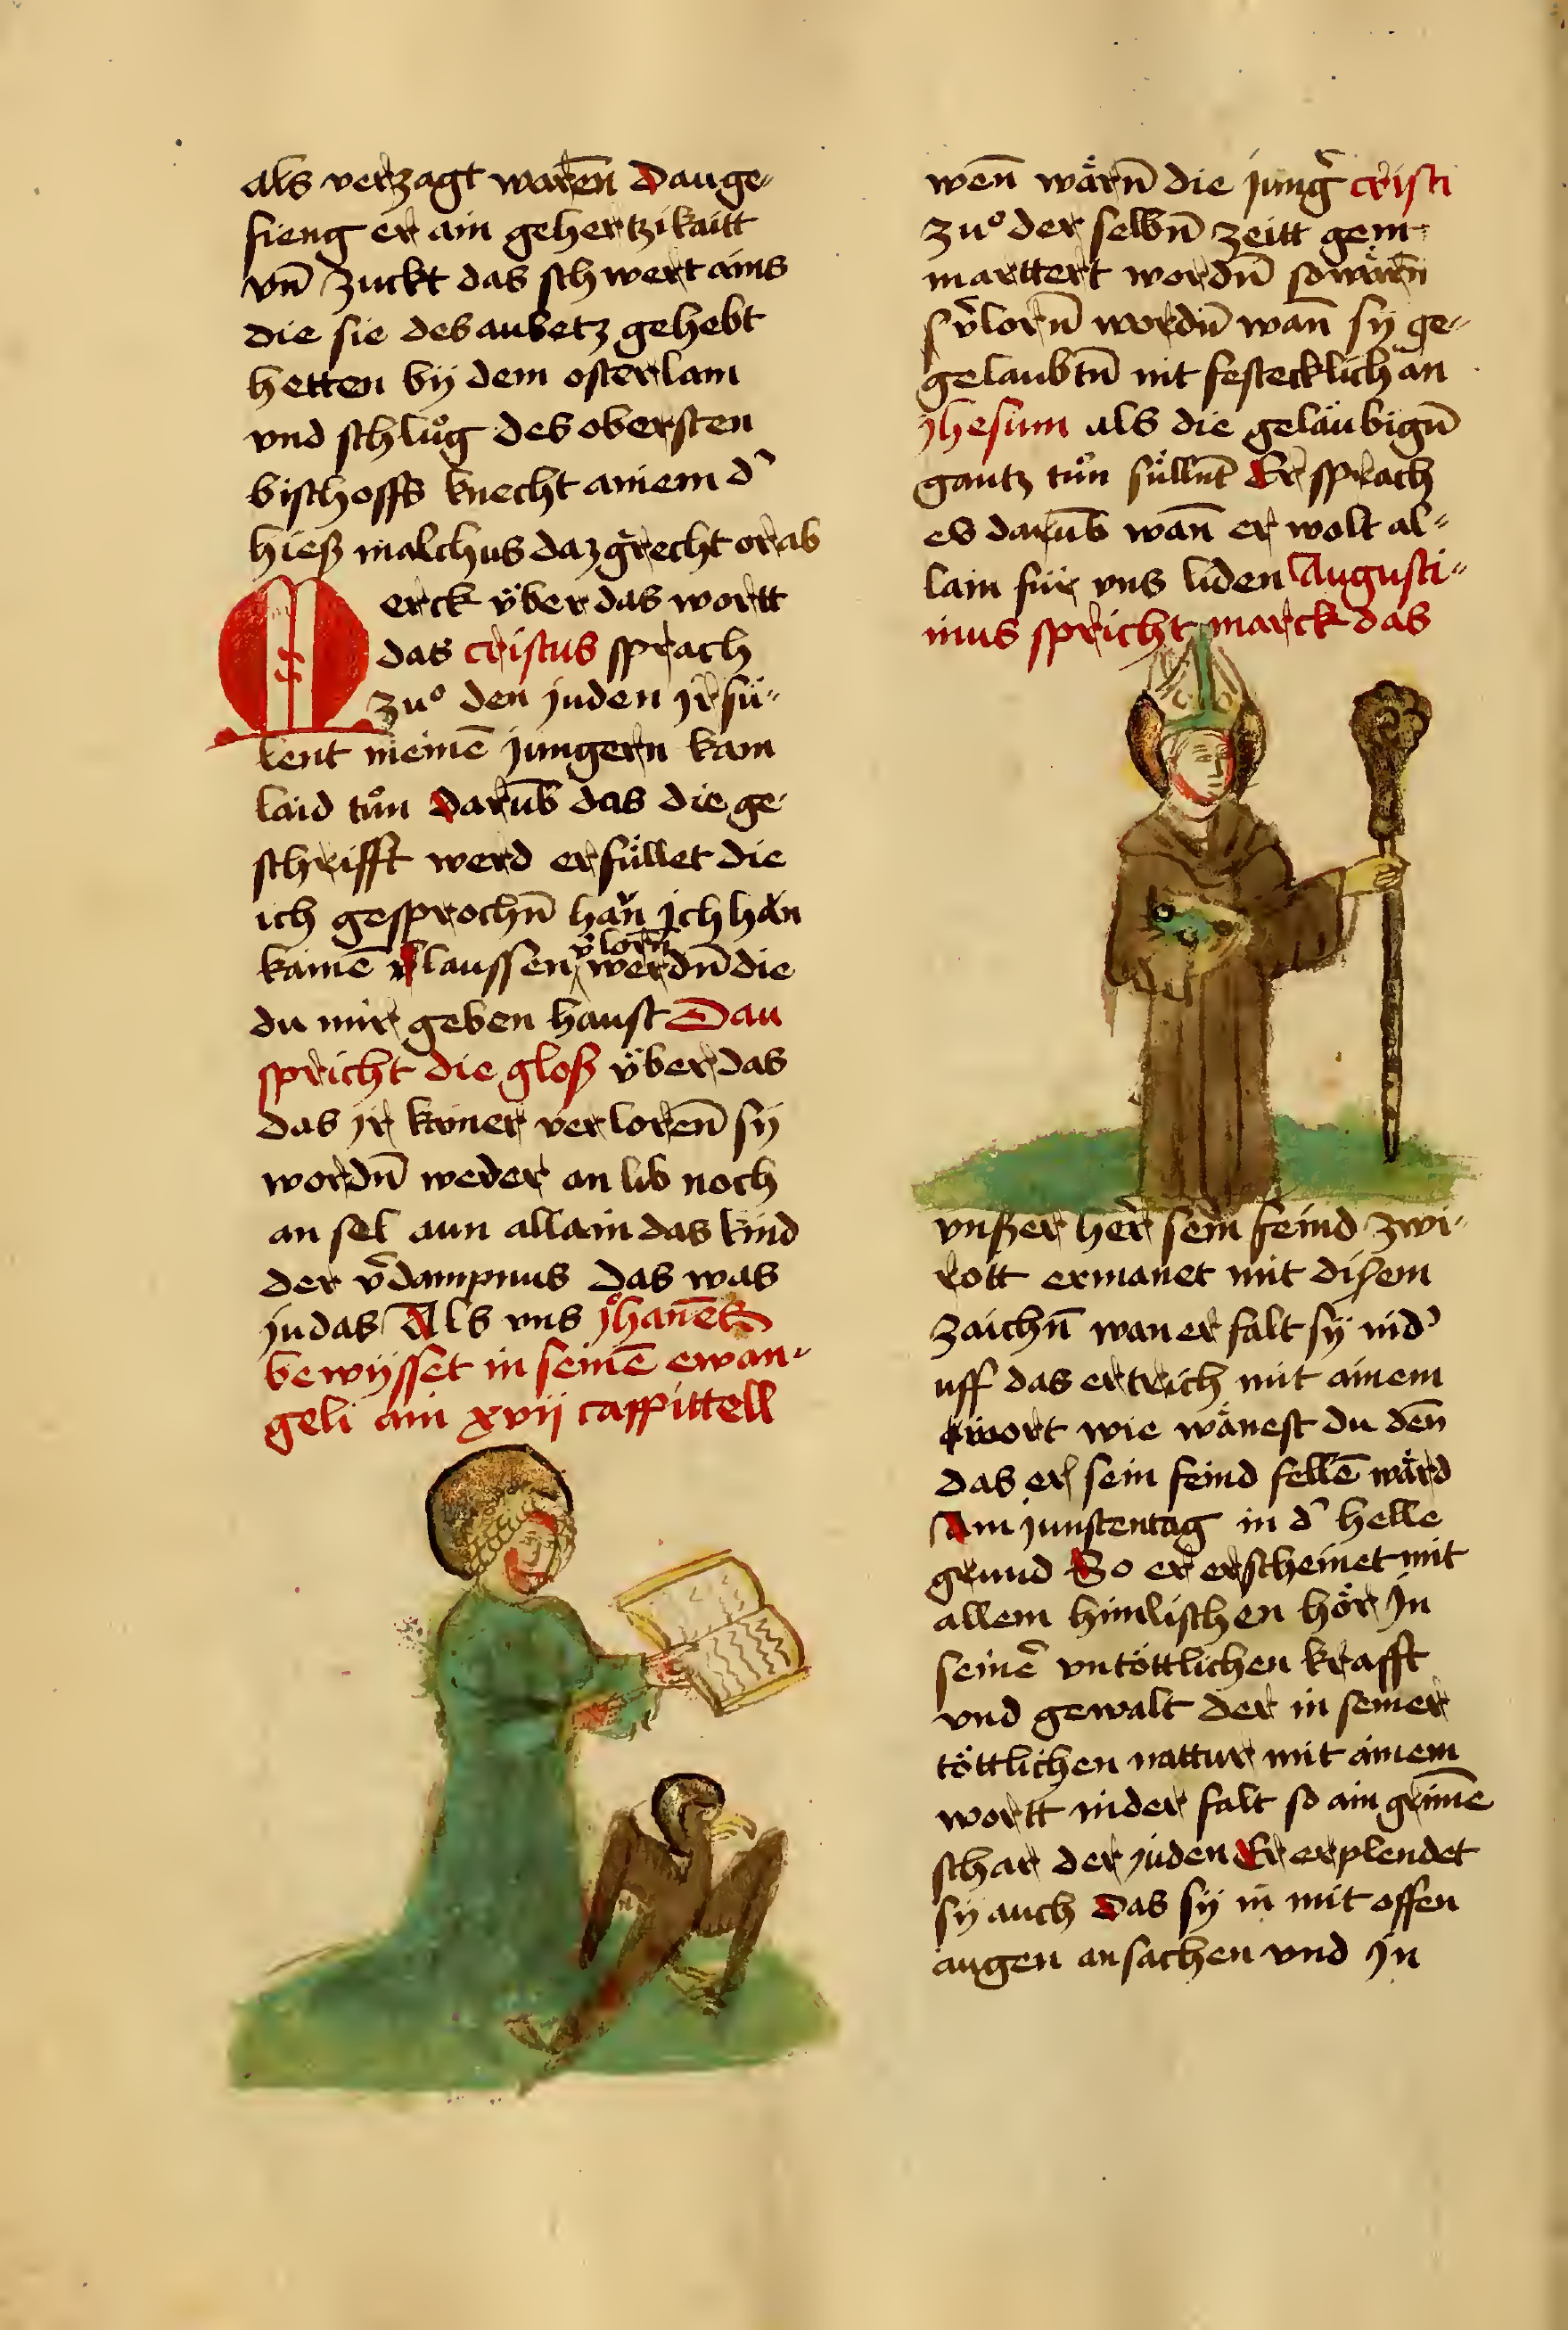 als verzagt waren̄ Dau ge⸗
fieng er ain gehertzikaitt
vn̄ zuckt das schwert ains
die sie des aubetz gehebt
hetten bÿ dem osterlam
vnd schlůg des obersten
bischoffs knecht ainem d'
hieß malchus daz grecht or ab
Merck v̈ber das wortt
das cristus sprach
zuͦ den juden jr sü⸗
lent meinē jungern kain
laid tůn darūb das die ge⸗
schrifft werd erfüllet die
ich gesprochn̄ han jch han
kainē v̄laussen v̄lorn̄ werdn̄ die
du mir geben haust Dau
spricht die gloß v̈ber das
das jr kainer verloren̄ sÿ
wordn̄ weder an lib noch
an sel aun allain das kind
der v̄dampnus das was
judas Als vns johanēs
bewÿsset in seinē ewan⸗
geli ain xvij cappittell
wen̄ wärn̄ die junḡ cristi
zuͦ der selbn̄ zeitt gem⸗
marttert wordn̄ so wärn̄
s v̄lorn̄ wordn̄ wan̄ sÿ ge⸗
gelaubtn̄ nit festecklich an
jhesum als die geläubign̄
gantz tůn süllnt̄ Er sprach
es darūb wan̄ er wolt al⸗
lain für vns liden Augusti⸗
inus spricht marck das
vnßer her̄ sein feind zwi⸗
rott ermanet mit disem
zaichn̄ wan er falt sÿ nid'
uff das ertrich mit ainem
wort wie wänest du den̄
das er sein feind fellē wärd
Am junstentag in d' helle
grund So er erscheinet mit
allem himlischen hör Jn
seinē vntöttlichen krafft
vnd gewalt der in seiner
töttlichen nattur mit ainem
wortt nider falt so ain grimē
schar der juden Er erplendet
sÿ auch das sÿ in mit offen
augen an sachen vnd jn